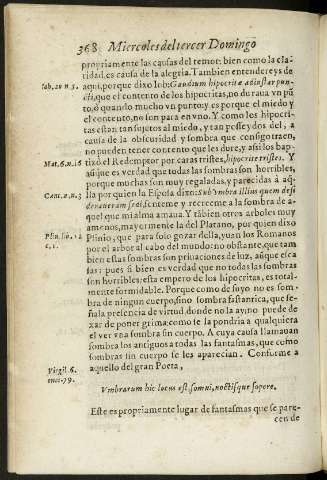 368 Miercoles del tercer Domingo
propriamente las causas del temor: bien como la cla-
ridad, es causa de la alegria. Tambien entendereys de
Iob. 20 n. 5. aqui, porque dixo Iob: Gaudium hipocritæ ad instar pun-
cti, que el contento de los hipocritas, no duraua vn pũ
to, o quando mucho vn punto: y es porque el miedo y
el contento, no son para en vno. Y como los hipocri-
tas estan tan sujetos al miedo, y tan posseydos del, a
causa de la obscuridad y sombra que consigo traen,
no pueden tener contento que les dure, y assi los bap-
Mat. 6. n. 16 tizo el Redemptor por caras tristes, hipocritæ tristes. Y
aũque es verdad que todas las sombras son horribles,
porque muchas son muy regaladas, y parecidas à aq̃-
Cant. 2. n. 3 lla por quien la Esposa dixo: Sub vmbra illius quem desi
deraueram sedi, sẽteme y recreeme a la sombra de a-
quel que mi alma amaua. Y tãbien otros arboles muy
amenos, mayormẽte la del Platano, por quien dixo
Plin. lib. 12 Plinio, que para solo gozar della, yuan los Romanos
c. 1. por el arbol al cabo del mundo: no obstante, que tam
bien estas sombras son priuaciones de luz, aũque esca
sas: pues si bien es verdad que no todas las sombras
son horribles: esta empero de los hipocritas, es total-
mente formidable. Porque como de suyo no es som-
bra de ningun cuerpo, sino sombra fantastica, que se-
ñala presencia de virtud, donde no la ay, no puede de
xar de poner grima: como le la pondria a qualquiera
el ver vna sombra sin cuerpo. A cuya causa llamauan
sombra los antiguos a todas las fantasmas, que como
sombras sin cuerpo se les aparecian. Conforme a
Virgil. 6. aquello del gran Poeta,
enei. 79.
Vmbrarum hic locus est, somni, noctisque soporæ.
Este es propriamente lugar de fantasmas que se pare-
cen de